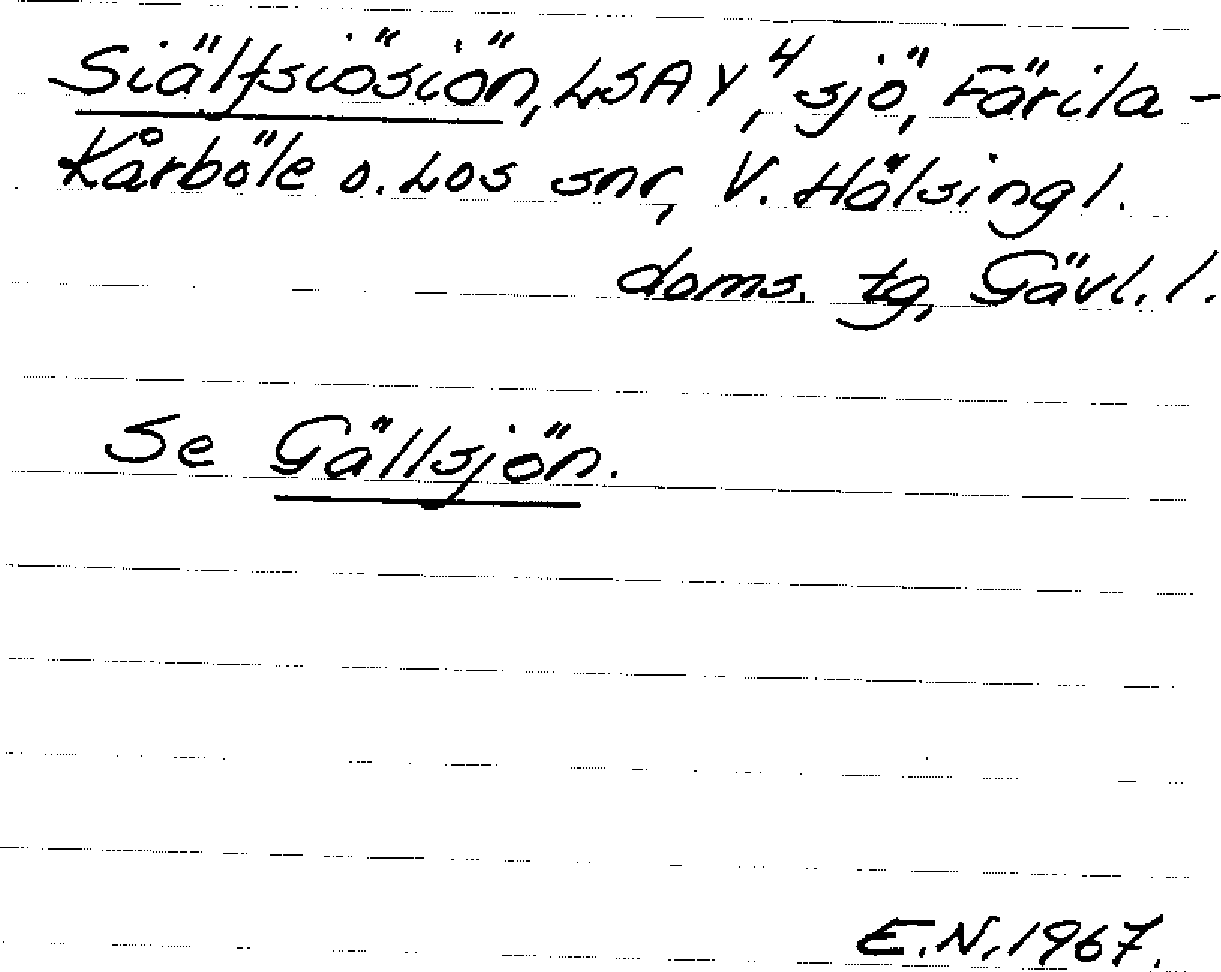 Siälfsiösiön, LSA Y⁴, sjö, Färila-
Kårböle o. Los snr, V. Hälsingl.
doms. tg, Gävl. l.
Se Gällsjön.
E.N. 1967.